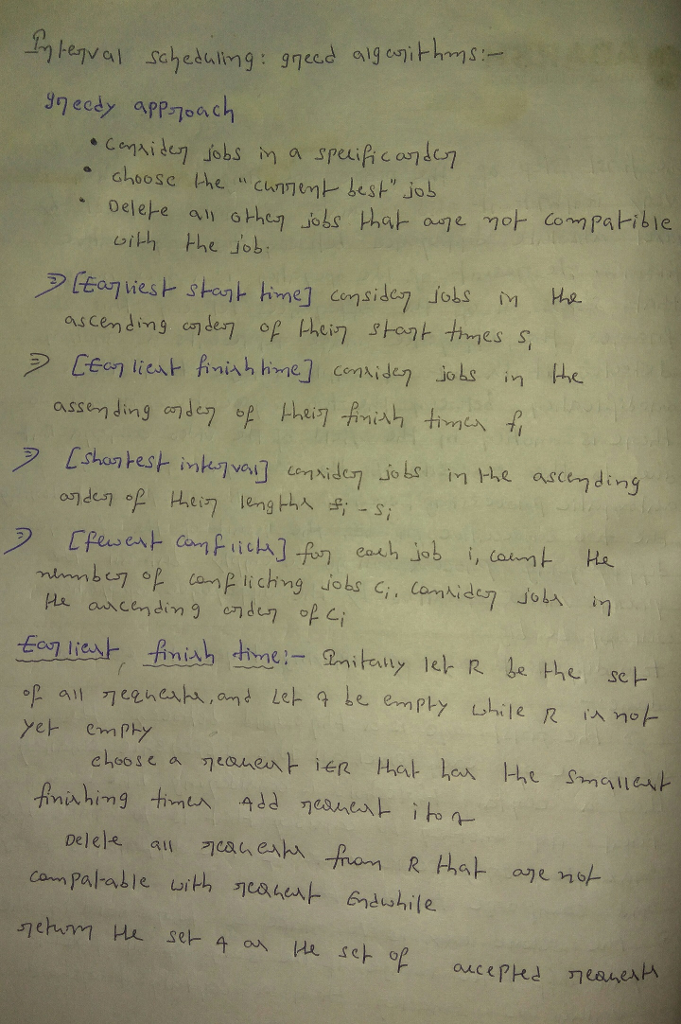 Interval scheduling: greed algorithms:-
greedy approach
• Consider jobs in a specific order
• choose the "current best" job
• Delete all other jobs that are not compatible
with the job.
⇒ [Earliest start time] consider jobs in the
ascending order of their start times si
⇒ [Earliest finish time] consider jobs in the
assending order of their finish times fi
⇒ [shortest interval] consider jobs in the ascending
order of their lengths fi - si
⇒ [fewest conflicts] for each job i, count the
number of conflicting jobs ci. consider jobs in
the ascending order of ci
Earliest, finish time:- Initally let R be the set
of all requests, and Let A be empty while R is not
yet empty
choose a request i∈R that has the smallest
finishing times Add request i to A
Delete all requests from R that are not
compatable with request Endwhile
return the set A as the set of accepted requests